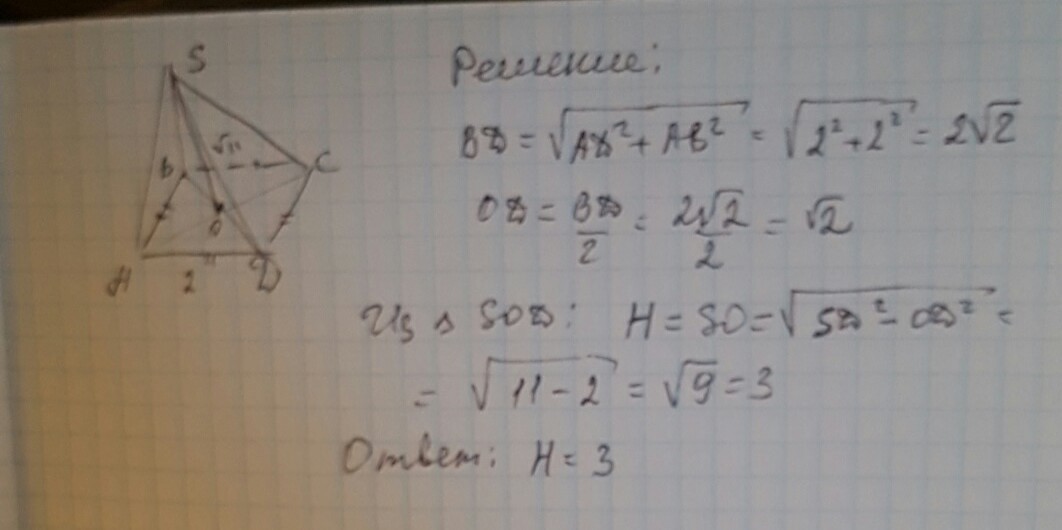 S
√11
B
C
O
A
2
D
Решение:
BD = √(AD² + AB²) = √(2² + 2²) = 2√2
OD = BD/2 = 2√2/2 = √2
Из △ SOD: H = SO = √(SD² - OD²) =
= √(11 - 2) = √9 = 3
Ответ: H = 3